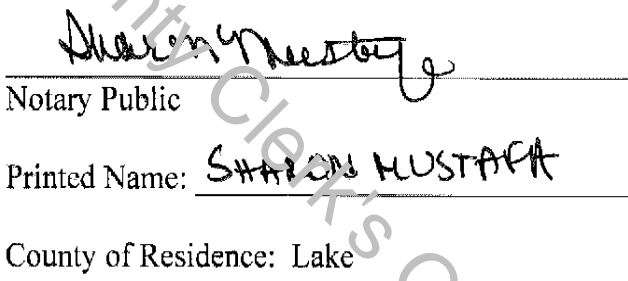 Sharon Mustafa
Notary Public
Printed Name: SHARON MUSTAFA
County of Residence: Lake
nty Clerk's O